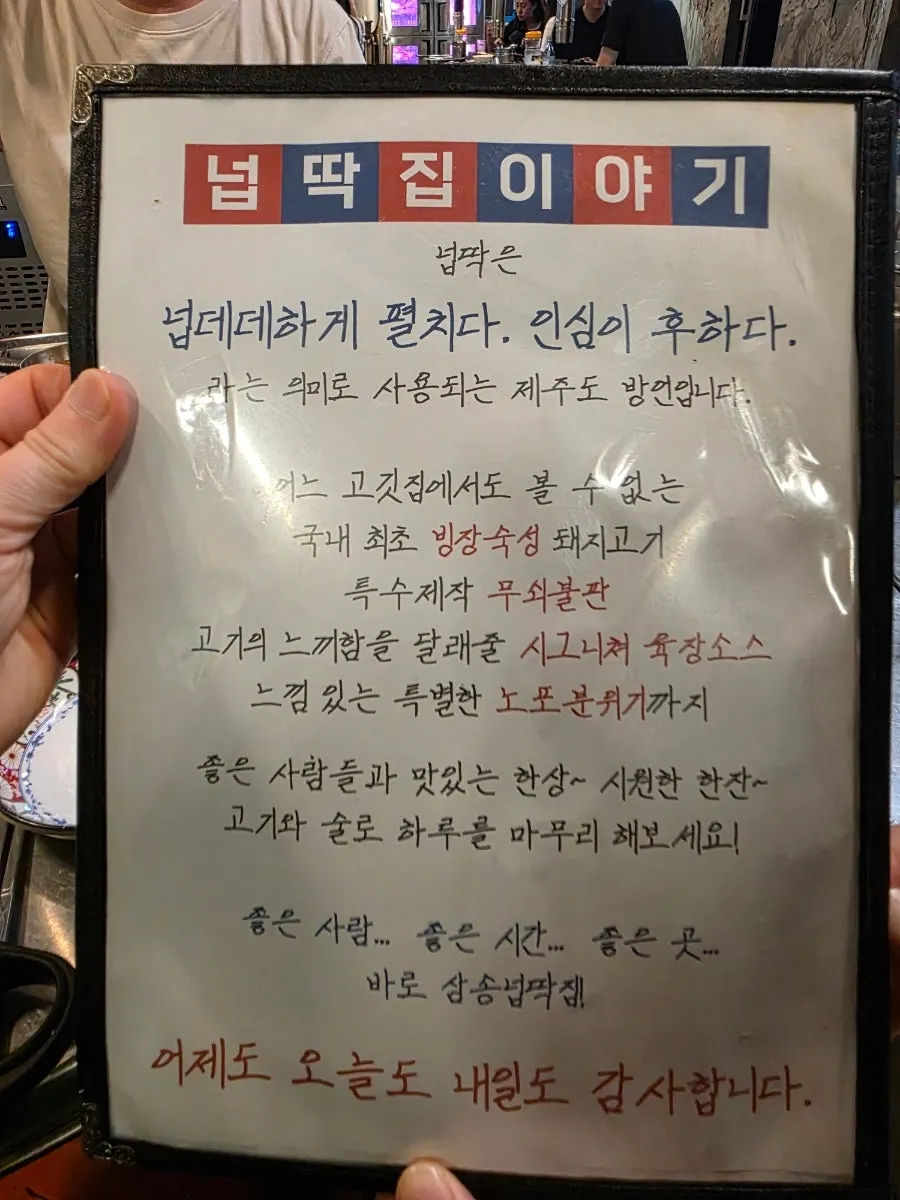 넙딱집이야기
넙딱은
넙데데하게 펼치다. 인심이 후하다.
라는 의미로 사용되는 제주도 방언입니다.
어느 고깃집에서도 볼 수 없는
국내 최초 빙장숙성 돼지고기
특수제작 무쇠불판
고기의 느끼함을 달래줄 시그니쳐 육장소스
느낌 있는 특별한 노포분위기까지
좋은 사람들과 맛있는 한상~ 시원한 한잔~
고기와 술로 하루를 마무리 해보세요!
좋은 사람... 좋은 시간... 좋은 곳...
바로 삼송넙딱집!
어제도 오늘도 내일도 감사합니다.